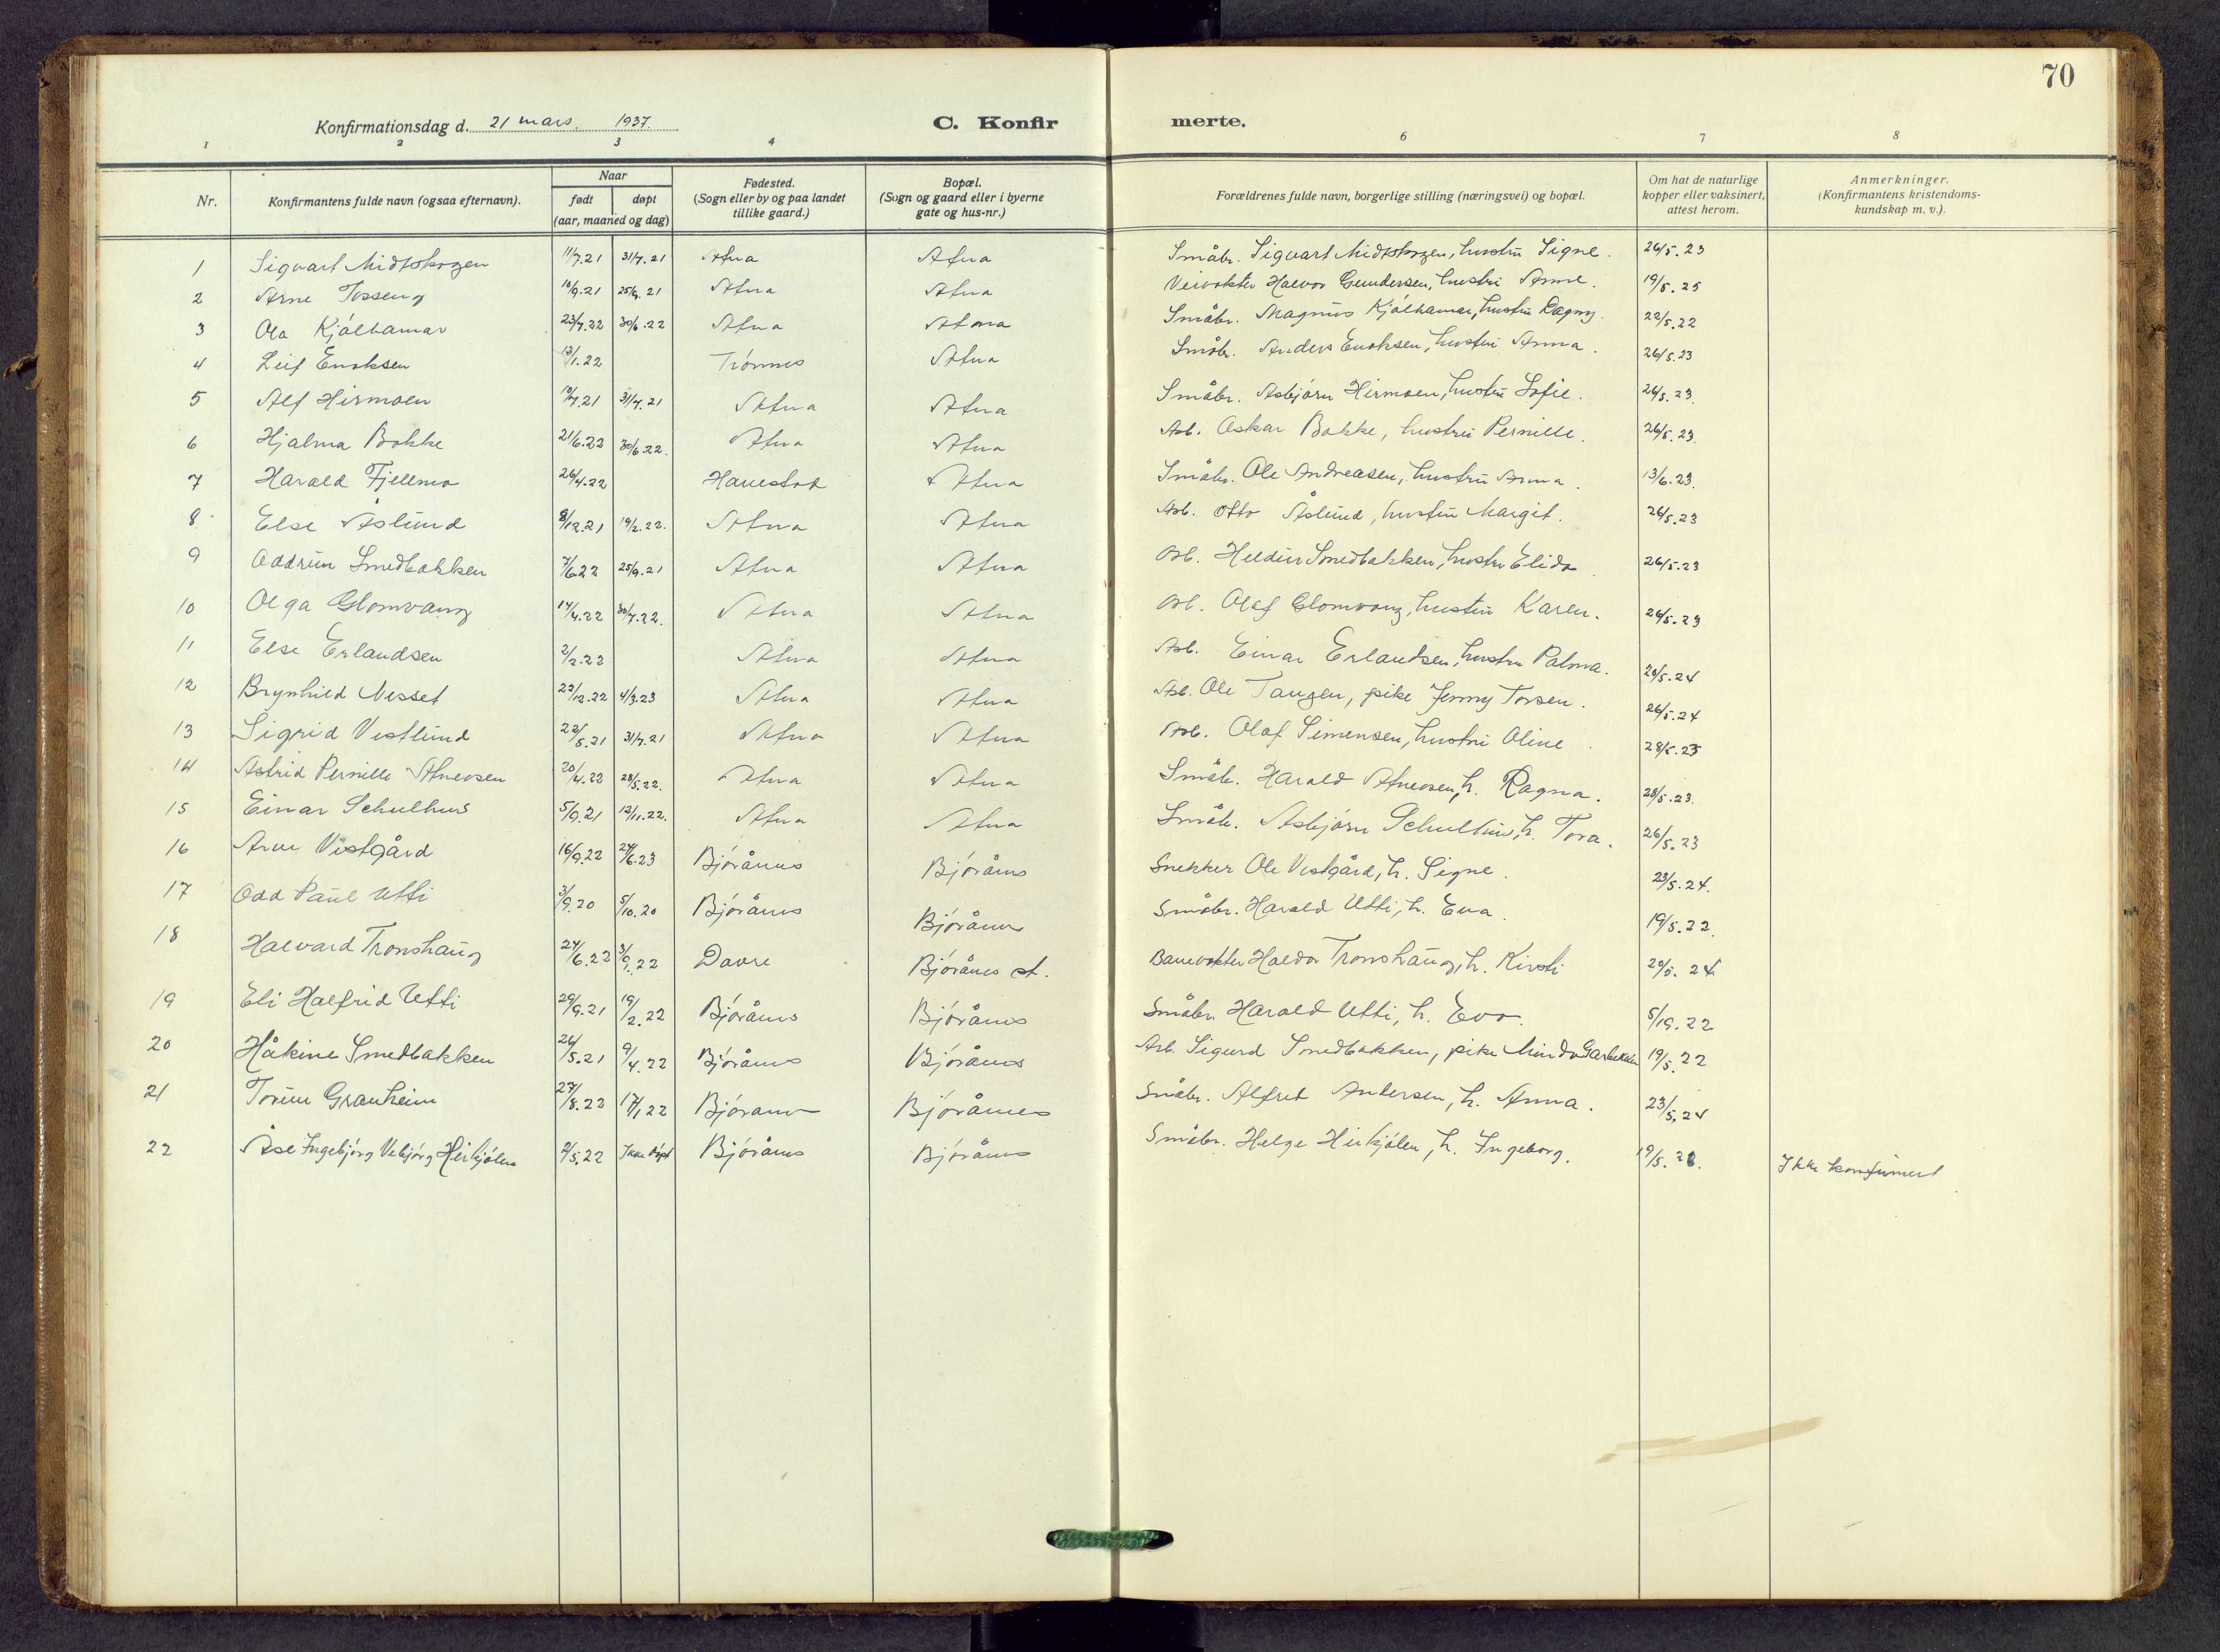 70
Konfirmationsdag d. 21 mars. 1937.
C. Konfirmerte.
1 2 3 4 6 7 8
Nr.
Konfirmantens fulde navn (ogsaa efternavn).
Naar
født
døpt
(aar, maaned og dag)
Fødested.
(Sogn eller by og paa landet
tillike gaard.)
Bopæl.
(Sogn og gaard eller i byerne
gate og hus-nr.)
Forældrenes fulde navn, borgerlige stilling (næringsvei) og bopæl.
Om hat de naturlige
kopper eller vaksinert,
attest herom.
Anmerkninger.
(Konfirmantens kristendoms-
kundskap m. v.).
1 Sigvart Midtskogen 11/7.21 31/7.21 Atna Atna Småbr. Sigvart Midtskogen, hustru Signe. 26/5.23
2 Arne Tosseng 10/9.21 25/9.21 Atna Atna Veivokter Halvor Gundersen, hustru Anne. 19/5.25
3 Ola Kjølhamar 23/4.22 30/6.22 Atna Atna Småbr. Magnus Kjølhamar, hustru Dagny. 22/5.22
4 Leif Enoksen 13/1.22 Trønnes Atna Småbr. Anders Enoksen, hustru Anna. 26/5.23
5 Alf Hirmoen 10/7.21 31/7.21 Atna Atna Småbr. Asbjørn Hirmoen, hustru Sofie. 26/5.23.
6 Hjalma Bakke 21/6.22 30/6.22. Atna Atna Arb. Oskar Bakke, hustru Pernille. 26/5.23.
7 Harald Fjellmo 26/4.22 Hanestad Atna Småbr. Ole Andreasen, hustru Anna. 13/6.23.
8 Else Åslund 8/12.21 19/2.22. Atna Atna Arb. Otto Åslund, hustru Margit. 26/5.23
9 Oddrun Smedbakken 7/6.22 25/9.21 Atna Atna Arb. Smedbakken, hustru Elida. 26/5.23
10 Olga Glomvang 14/4.22 30/7.22. Atna Atna Arb. Olaf Glomvang, hustru Karen. 26/5.23
11 Else Erlandsen 2/2.22 Atna Atna Arb. Einar Erlandsen, hustru Palma. 20/5.24
12 Brynhild Nesset 22/12.22 4/3.23 Atna Atna Arb. Ole Tangen, pike Jenny Torsen. 26/5.24
13 Sigrid Vestlund 22/5.21 31/7.21 Atna Atna Arb. Olaf Simensen, hustru Oline. 28/5.25
14 Astrid Pernille Atneosen 20/4.22 28/5.22. Atna Atna Småbr. Harald Atneosen, h. Ragna. 28/5.23.
15 Einar Schulhus 5/9.21 12/11.22. Atna Atna Småbr. Asbjørn Schulhus, h. Tora. 26/5.23
16 Arne Vestgård 16/9.22 24/6.23 Bjørånes Bjørånes Snekker Ole Vestgård, h. Signe. 23/5.24.
17 Odd Paul Utti 3/9.20 5/10.20 Bjørånes Bjørånes Småbr. Harald Utti, h. Eva. 19/5.22.
18 Halvard Tronshaug 24/6.22 3/9.22 Dovre Bjørånes st. Banevokter Haldor Tronshaug, h. Kirsti 20/5.24
19 Eli Halfrid Utti 29/9.21 19/2.22 Bjørånes Bjørånes Småbr. Harald Utti, h. Eva. 5/19.22
20 Håkine Smedbakken 26/5.21 9/4.22 Bjørånes Bjørånes Arb. Sigurd Smedbakken, pike Minda 19/5.22
21 Torun Granheim 27/8.22 17/1.22 Bjørånes Bjørånes Småbr. Alfred Andersen, h. Anna. 23/5.24
22 Åse Ingebjørg Vebjørg Heikjølen 2/5.22 Ikke døpt Bjørånes Bjørånes Småbr. Helge Heikjølen, h. Ingeborg. 19/5.28. Ikke konfirmert